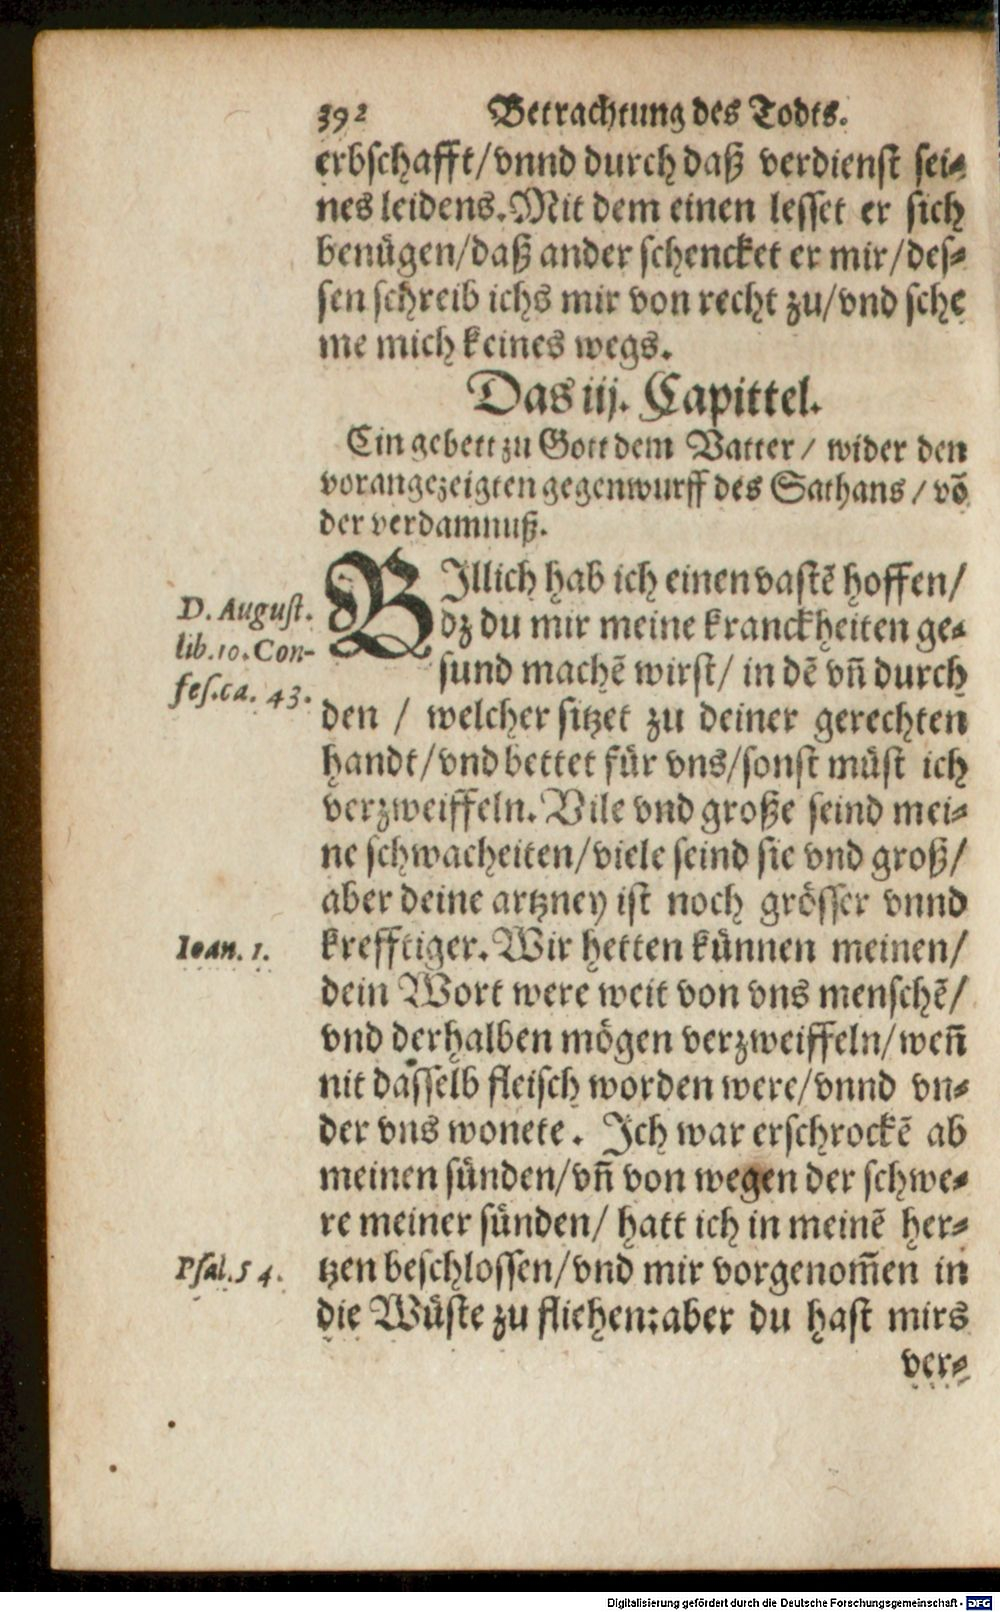 392 Betrachtung des Todts.
erbschafft/vnnd durch daß verdienst sei⸗
nes leidens. Mit dem einen lesset er sich
benügen/daß ander schencket er mir/des⸗
sen schreib ichs mir von recht zu/vnd sche
me mich keines wegs.
Das iij. Capittel.
Ein gebett zu Gott dem Vatter / wider den
vorangezeigten gegenwurff des Sathans / võ
der verdamnuß.
BIllich hab ich einen vastẽ hoffen/
D. August.
dz du mir meine kranckheiten ge⸗
lib.10.Con-
sund machẽ wirst/ in dẽ vñ durch
fes.ca. 43.
den / welcher sitzet zu deiner gerechten
handt/vnd bettet für vns/sonst müst ich
verzweiffeln. Vile vnd große seind mei⸗
ne schwacheiten/viele seind sie vnd groß/
aber deine artzney ist noch grösser vnnd
Ioan. 1.
krefftiger. Wir hetten künnen meinen/
dein Wort were weit von vns menschẽ/
vnd derhalben mögen verzweiffeln/weñ
nit dasselb fleisch worden were/vnnd vn⸗
der vns wonete. Ich war erschrockẽ ab
meinen sünden/vñ von wegen der schwe⸗
re meiner sünden/ hatt ich in meinẽ her⸗
Psal.54.
tzen beschlossen/vnd mir vorgenom̃en in
die Wüste zu fliehen:aber du hast mirs
ver⸗
Digitalisierung gefördert durch die Deutsche Forschungsgemeinschaft - DFG